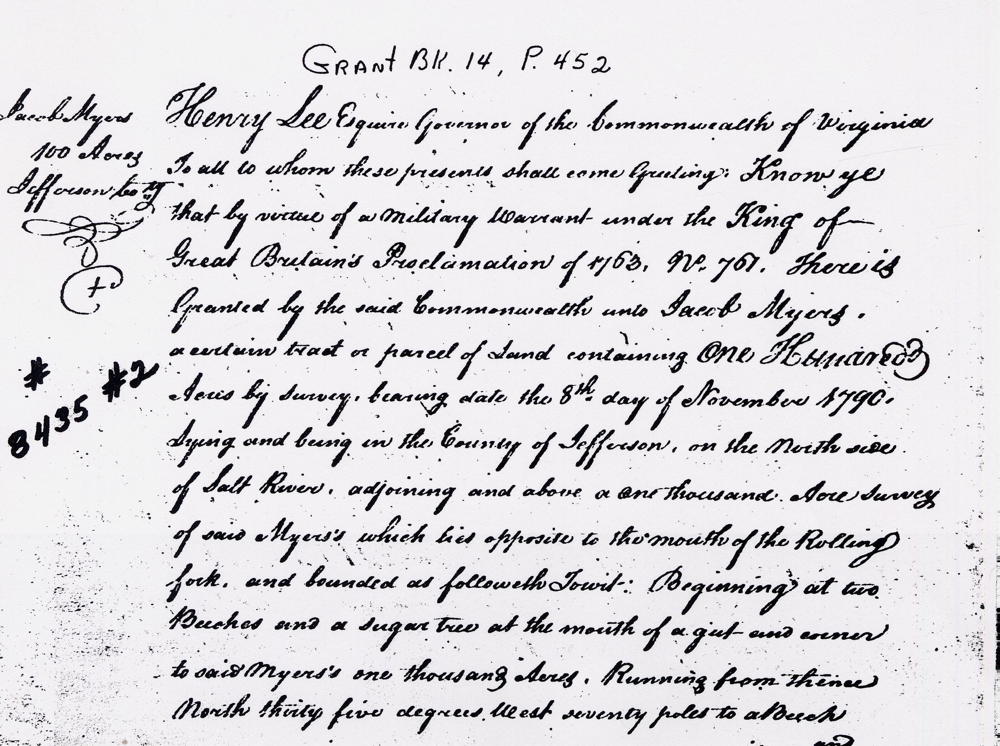 GRANT BK. 14, P. 452
Jacob Myers
100 Acres
Jefferson Coty
#
8435 #2
Henry Lee Esquire Governor of the Commonwealth of Virginia
To all to whom these presents shall come Greeting: Know ye
that by virtue of a Military Warrant under the King of
Great Britain's Proclamation of 1763. No. 761. There is
Granted by the said Commonwealth unto Jacob Myers.
a certain tract or parcel of Land containing One Hundred
Acres by survey, bearing date the 8th day of November 1790.
Lying and being in the County of Jefferson, on the North side
of Salt River, adjoining and above a one thousand Acre Survey
of said Myers's which lies opposite to the mouth of the Rolling
fork, and bounded as followeth Towit: Beginning at two
Beeches and a sugar tree at the mouth of a gut and corner
to said Myers's one thousand Acres, Running from thence
North thirty five degrees West seventy poles to a Beech
and